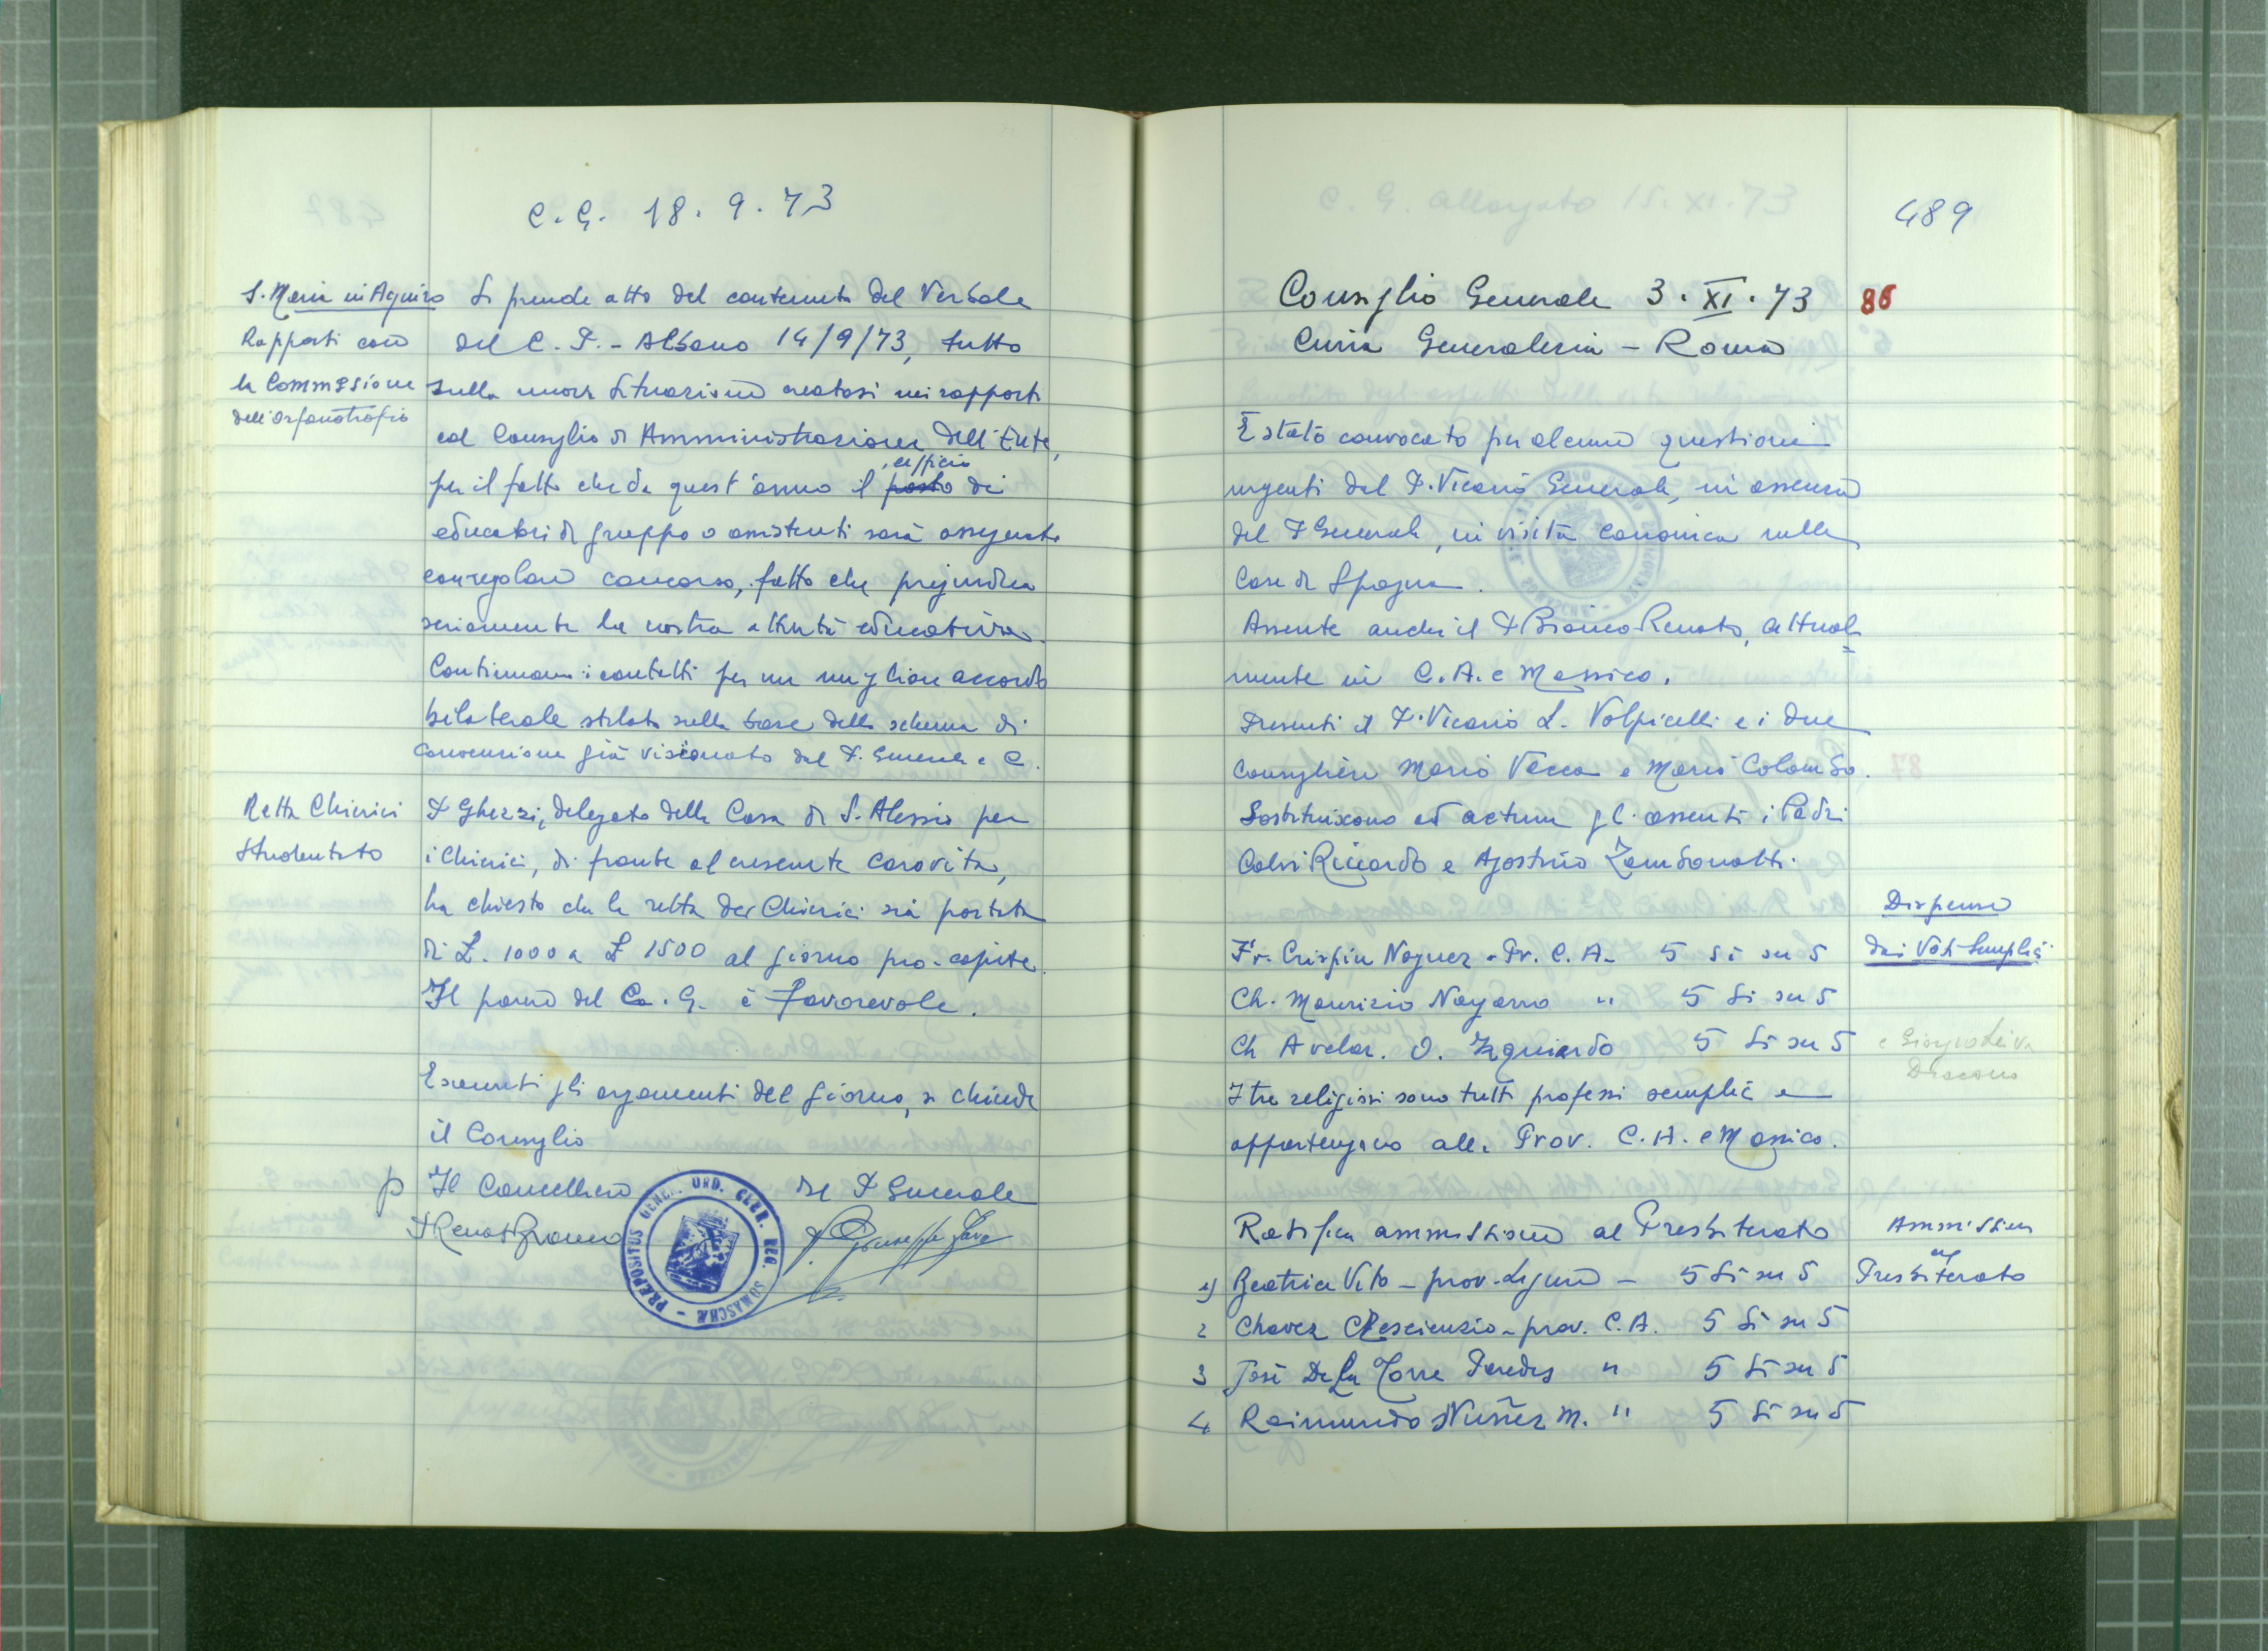 C. G. 18. 9. 73
S. Maria in Aquiro
Rapporti con
la Commissione
dell'orfanotrofio
Si prende atto del contenuto del Verbale
del C. P. - Albano 14/9/73, tutto
sulla nuova situazione creatasi nei rapporti
col Consiglio di Amministrazione dell'Ente,
per il fatto che da quest'anno il posto ufficio di
educatori di gruppo o assistenti sarà assegnato
con regolare concorso, fatto che pregiudica
seriamente la nostra attività educativa.
Continuano i contatti per un miglior accordo
bilaterale stilato sulla base dello schema di
convenzione già visionato dal P. Generale e C.
Retta Chierici
Studentato
P Ghezzi, delegato della Casa di S. Alessio per
i Chierici, di fronte al crescente carovita,
ha chiesto che la retta dei Chierici sia portata
di £. 1000 a £ 1500 al giorno pro-capite.
Il parere del Co. G. è favorevole.
Esauriti gli argomenti del giorno, si chiude
il Consiglio
p Il Cancelliere
P Renato Bianco
Il P Generale
P. Giuseppe Fava
PRAEPOSITUS GENER. ORD. CLER. REG. SOMASCHAE
489
Consiglio Generale 3. XI. 73
86
Curia Generalizia - Roma
È stato convocato per alcune questioni
urgenti dal P. Vicario Generale, in assenza
del P Generale, in visita canonica nelle
Case di Spagna.
Assente anche il P Bianco Renato, attual=
mente in C. A. e Messico.
Presenti il P. Vicario L. Volpicelli e i due
Consiglieri Mario Vacca e Mario Colombo.
Sostituiscono ad actum gli assenti i Padri
Calvi Riccardo e Agostino Zambonatti.
Dispense
dai Voti Semplici
Fr. Crispin Noguez - Pr. C. A. 5 Si su 5
Ch. Maurizio Navarro " 5 Si su 5
Ch Avelar. O. Izquiardo 5 Si su 5
Diacono
I tre religiosi sono tutti professi semplici e
appartengono alla Prov. C. A. e Messico.
Ratifica ammissione al Presbiterato
Ammissione
al
Presbiterato
1) Beatrice Vito - prov. Ligure - 5 Si su 5
2 Chavez CRescienzio - prov. C. A. 5 Si su 5
3 José De La Torre Paredes " 5 Si su 5
4 Raimundo Nuñez M. " 5 Si su 5